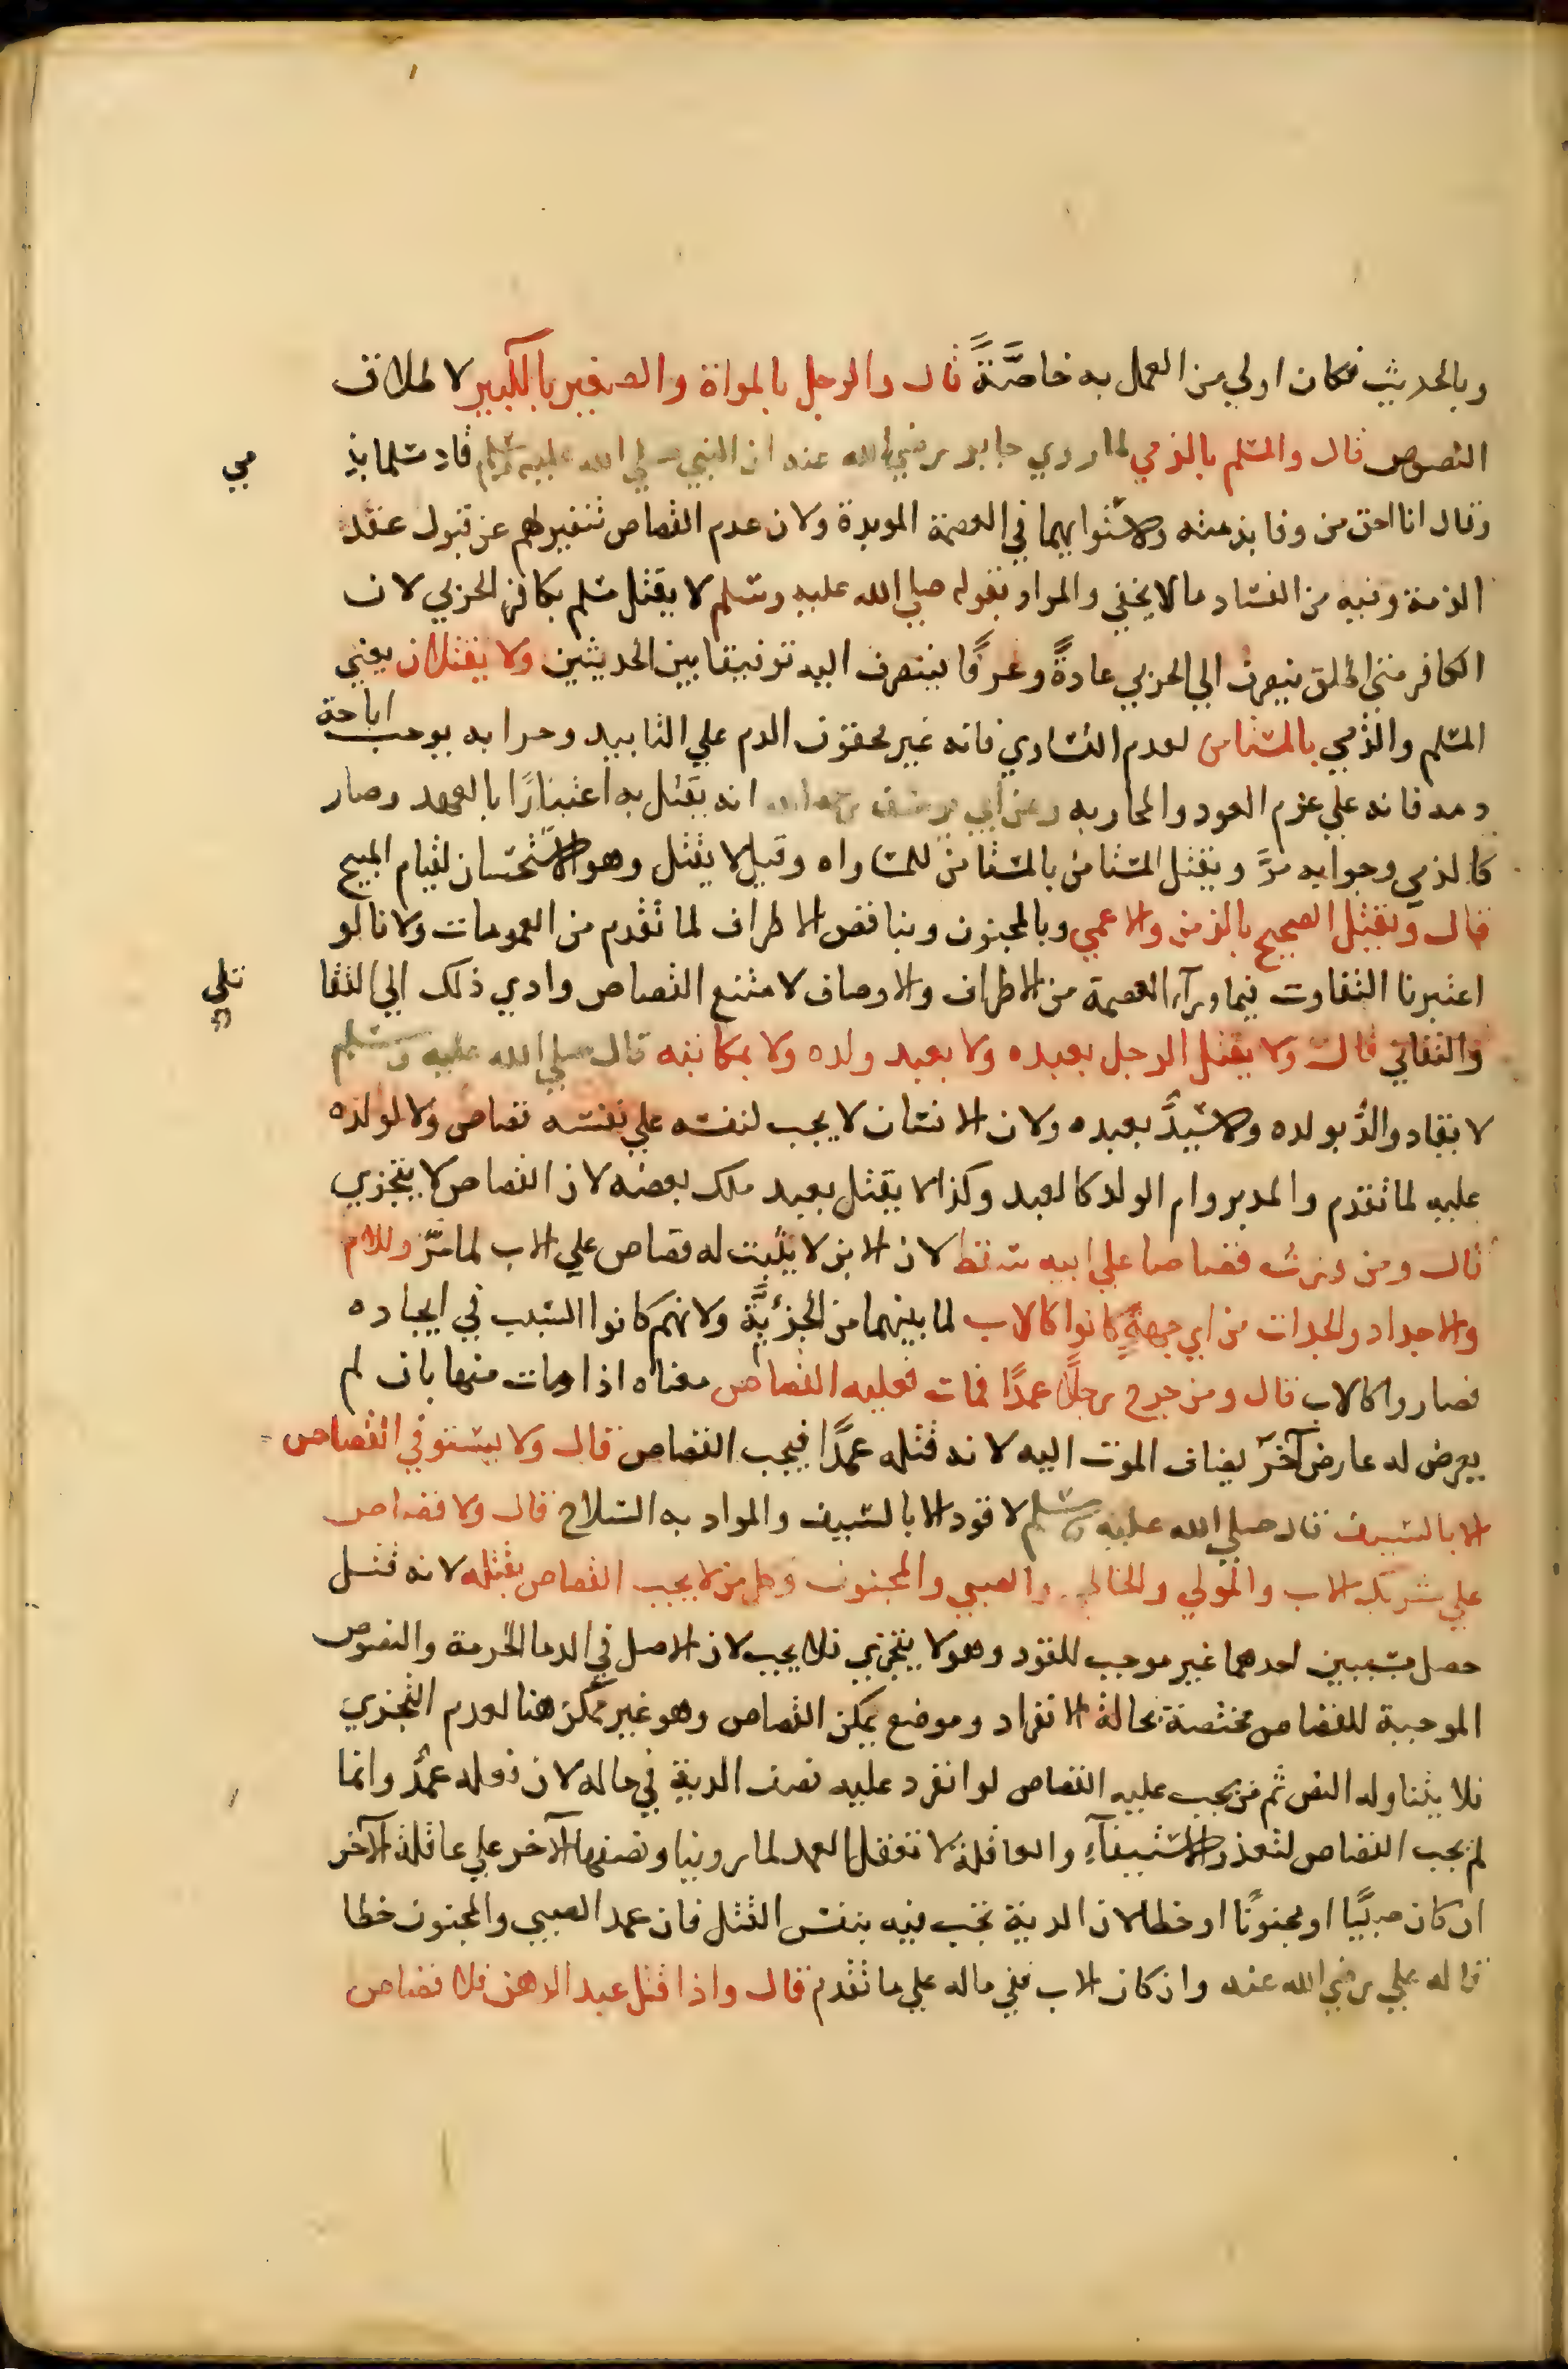 وبالحديث فكان اولي من العمل به خاصَّةً قال والرجل بالمراة والصغير بالكبير لاطلاق
النصوص قال والمسلم بالذمي لما روي جابر رضي الله عنه ان النبي صلي الله عليه وسلم قاد مسلما بذ مي
وقال انا احق من وفا بذمته ولاستوايهما في العصمة الموبدة ولان عدم القصاص تنفيرلهم عن قبول عقد
الذمة وفيه من الفساد ما لا يخفي والمراد بقوله صلي الله عليه وسلم لا يقتل مسلم بكافر الحربي لان
الكافر متي اطلق ينصرف الي الحربي عادةً وعرفًا فينصرف اليه توفيقا بين الحديثين ولا يقتلان يعني
المسلم والذمي بالمستامن لعدم التساوي فانه غير محقون الدم علي التابيد وحرابه يوجب اباحة
دمه فانه علي عزم العود والمحاربه وعن ابي يوسف رحمه الله انه يقتل به اعتبارًا بالعهد وصار
كالذمي وجوابه مرَّ ويقتل المستامن بالمستامن للمساواه وقيل لا يقتل وهو الاستحسان لقيام المبيح
قال ويقتل الصحيح بالزمن والاعمي وبالمجنون وبناقص الاطراف لما تقدم من العمومات ولانا لو
اعتبرنا التفاوت فيما ورآء العصمة من الاطراف والاوصاف لامتنع القصاص وادي ذلك الي التقا تلي
والتفاني قال ولا يقتل الرجل بعبده ولا بعبد ولده ولا بمكاتبه قال صلي الله عليه وسلم
لا يقاد والدٌ بولده ولا سيدٌ بعبده ولان الانسان لا يجب لنفسه علي نفسه قصاص ولا لولده
عليه لما تقدم والمدبر وام الولد كالعبد وكذا لا يقتل بعبد ملك بعضه لان القصاص لا يتجزي
قال ومن ورث قصاصا علي ابيه سقط لان الابن لا يثبت له قصاص علي الاب لما مرّ وللام
والاجداد والجدات من اي جهةٍ كانوا كالاب لما بينهما من الجزئيَّة ولانهم كانوا السبب في ايجاده
فصاروا كالاب قال ومن جرح رجلًا عمدًا فمات فعليه القصاص معناه اذا مات منها بان لم
يعرض له عارض آخر يضاف الموت اليه لانه قتله عمدًا فيجب القصاص قال ولا يستوفي القصاص
الا بالسيف قال صلي الله عليه وسلم لا قود الا بالسيف والمراد به السلاح قال ولا قصاص
علي شريك الاب والمولي والخاطي والصبي والمجنون وكل من لا يجب القصاص بقتله لانه قتل
حصل بسببين احدهما غير موجب للقود وهو لا يتجزي فلا يجب لان الاصل في الدما الحرمة والنصوص
الموجبة للقصاص مختصة بحالة الانفراد وموضع يمكن القصاص وهو غير ممكن هنا لعدم التجزي
فلا يتناوله النص ثم من يجب عليه القصاص لو انفرد عليه نصف الدية في ماله لان فعله عمدٌ وانما
لم يجب القصاص لتعذر الاستيفآء والعاقلة لا تعقل العمد لما روينا ونصفها الآخر علي عاقلة الآخر
ان كان صبيًا او مجنونًا او خطا لان الدية تجب فيه بنفس القتل فان عمد الصبي والمجنون خطا
قاله علي رضي الله عنه وان كان الاب ففي ماله علي ما تقدم قال واذا قتل عبد الرهن فلا قصاص